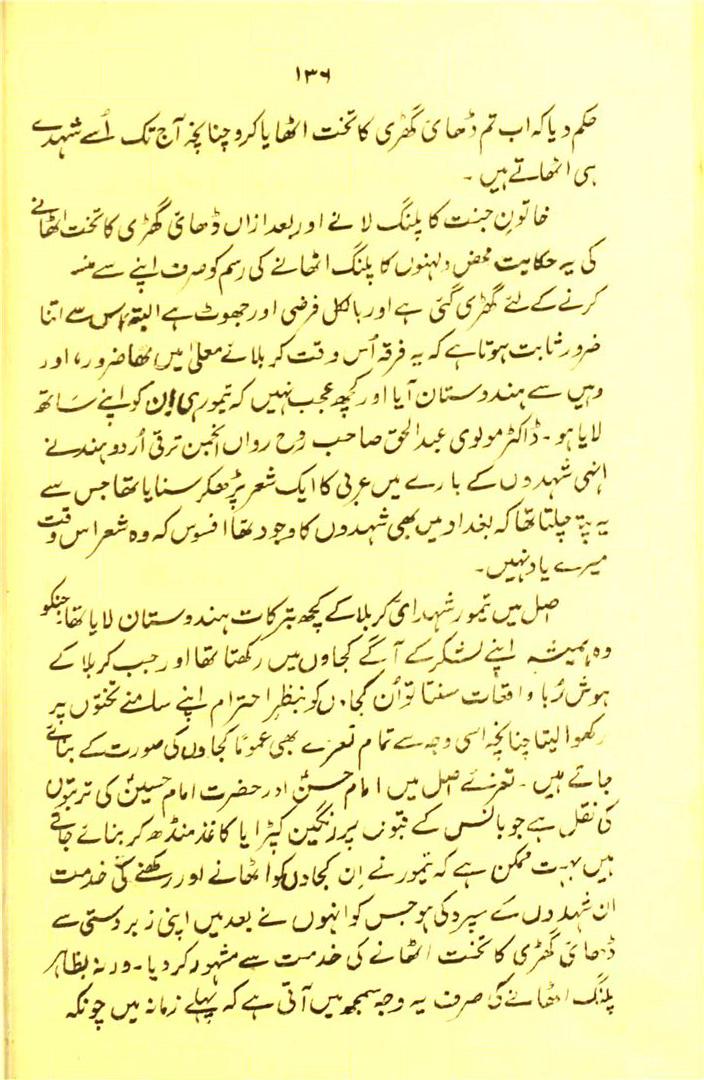 ۱۳۶
حکم دیا کہ اب تم ڈھائی گھڑی کا تخت اٹھایا کرو چنانچہ آج تک اُسے شہدے
ہی اٹھاتے ہیں ۔
خاتونِ جنت کا پلنگ لانے اور بعد ازاں ڈھائی گھڑی کا تخت اٹھانے
کی یہ حکایت محض دلہنوں کا پلنگ اٹھانے کی رسم کو صرف اپنے سے
کرنے کے لئے گھڑی گئی ہے اور بالکل فرضی اور جھوٹ ہے البتہ اس سے اتنا
ضرور ثابت ہوتا ہے کہ یہ فرقہ اُس وقت کربلائے معلیٰ میں تھا ضرور، اور
وہیں سے ہندوستان آیا اور کچھ عجب نہیں کہ تیمور ہی اِن کو اپنے ساتھ
لایا ہو ۔ ڈاکٹر مولوی عبدالحق صاحب روح رواں انجمن ترقی اُردو ہند نے
انہی شہدوں کے بارے میں عربی کا ایک شعر پڑھکر سنایا تھا جس سے
یہ پتہ چلتا تھا کہ بغداد میں بھی شہدوں کا وجود تھا افسوس کہ وہ شعر اس وقت
میرے یاد نہیں ۔
اصل میں تیمور شہدائے کربلا کے کچھ تبرکات ہندوستان لایا تھا جنکو
وہ ہمیشہ اپنے لشکر کے آگے کجاوں میں رکھتا تھا اور جب کربلا کے
ہوش رُبا واقعات سنتا تو اُن کجاوں کو بنظرِ احترام اپنے سامنے تختوں پر
رکھوا لیتا چنانچہ اسی وجہ سے تمام تعزے بھی عموماً کجاوں کی صورت کے بنائے
جاتے ہیں ۔ تعزئے اصل میں امام حسنؑ اور حضرت امام حسینؑ کی تربتوں
کی نقل ہے جو بانس کے قبوں پر رنگین کپڑا یا کاغذ منڈھ کر بنائے جاتے
ہیں بہت ممکن ہے کہ تیمور نے اِن کجاوں کو اٹھانے اور رکھنے کی خدمت
ان شہدوں کے سپرد کی ہو جس کو انہوں نے بعد میں اپنی زبردستی سے
ڈھائی گھڑی کا تخت اٹھانے کی خدمت سے مشہور کر دیا ۔ ورنہ بظاہر
پلنگ اٹھانے کی صرف یہ وجہ سمجھ میں آتی ہے کہ پہلے زمانہ میں چونکہ